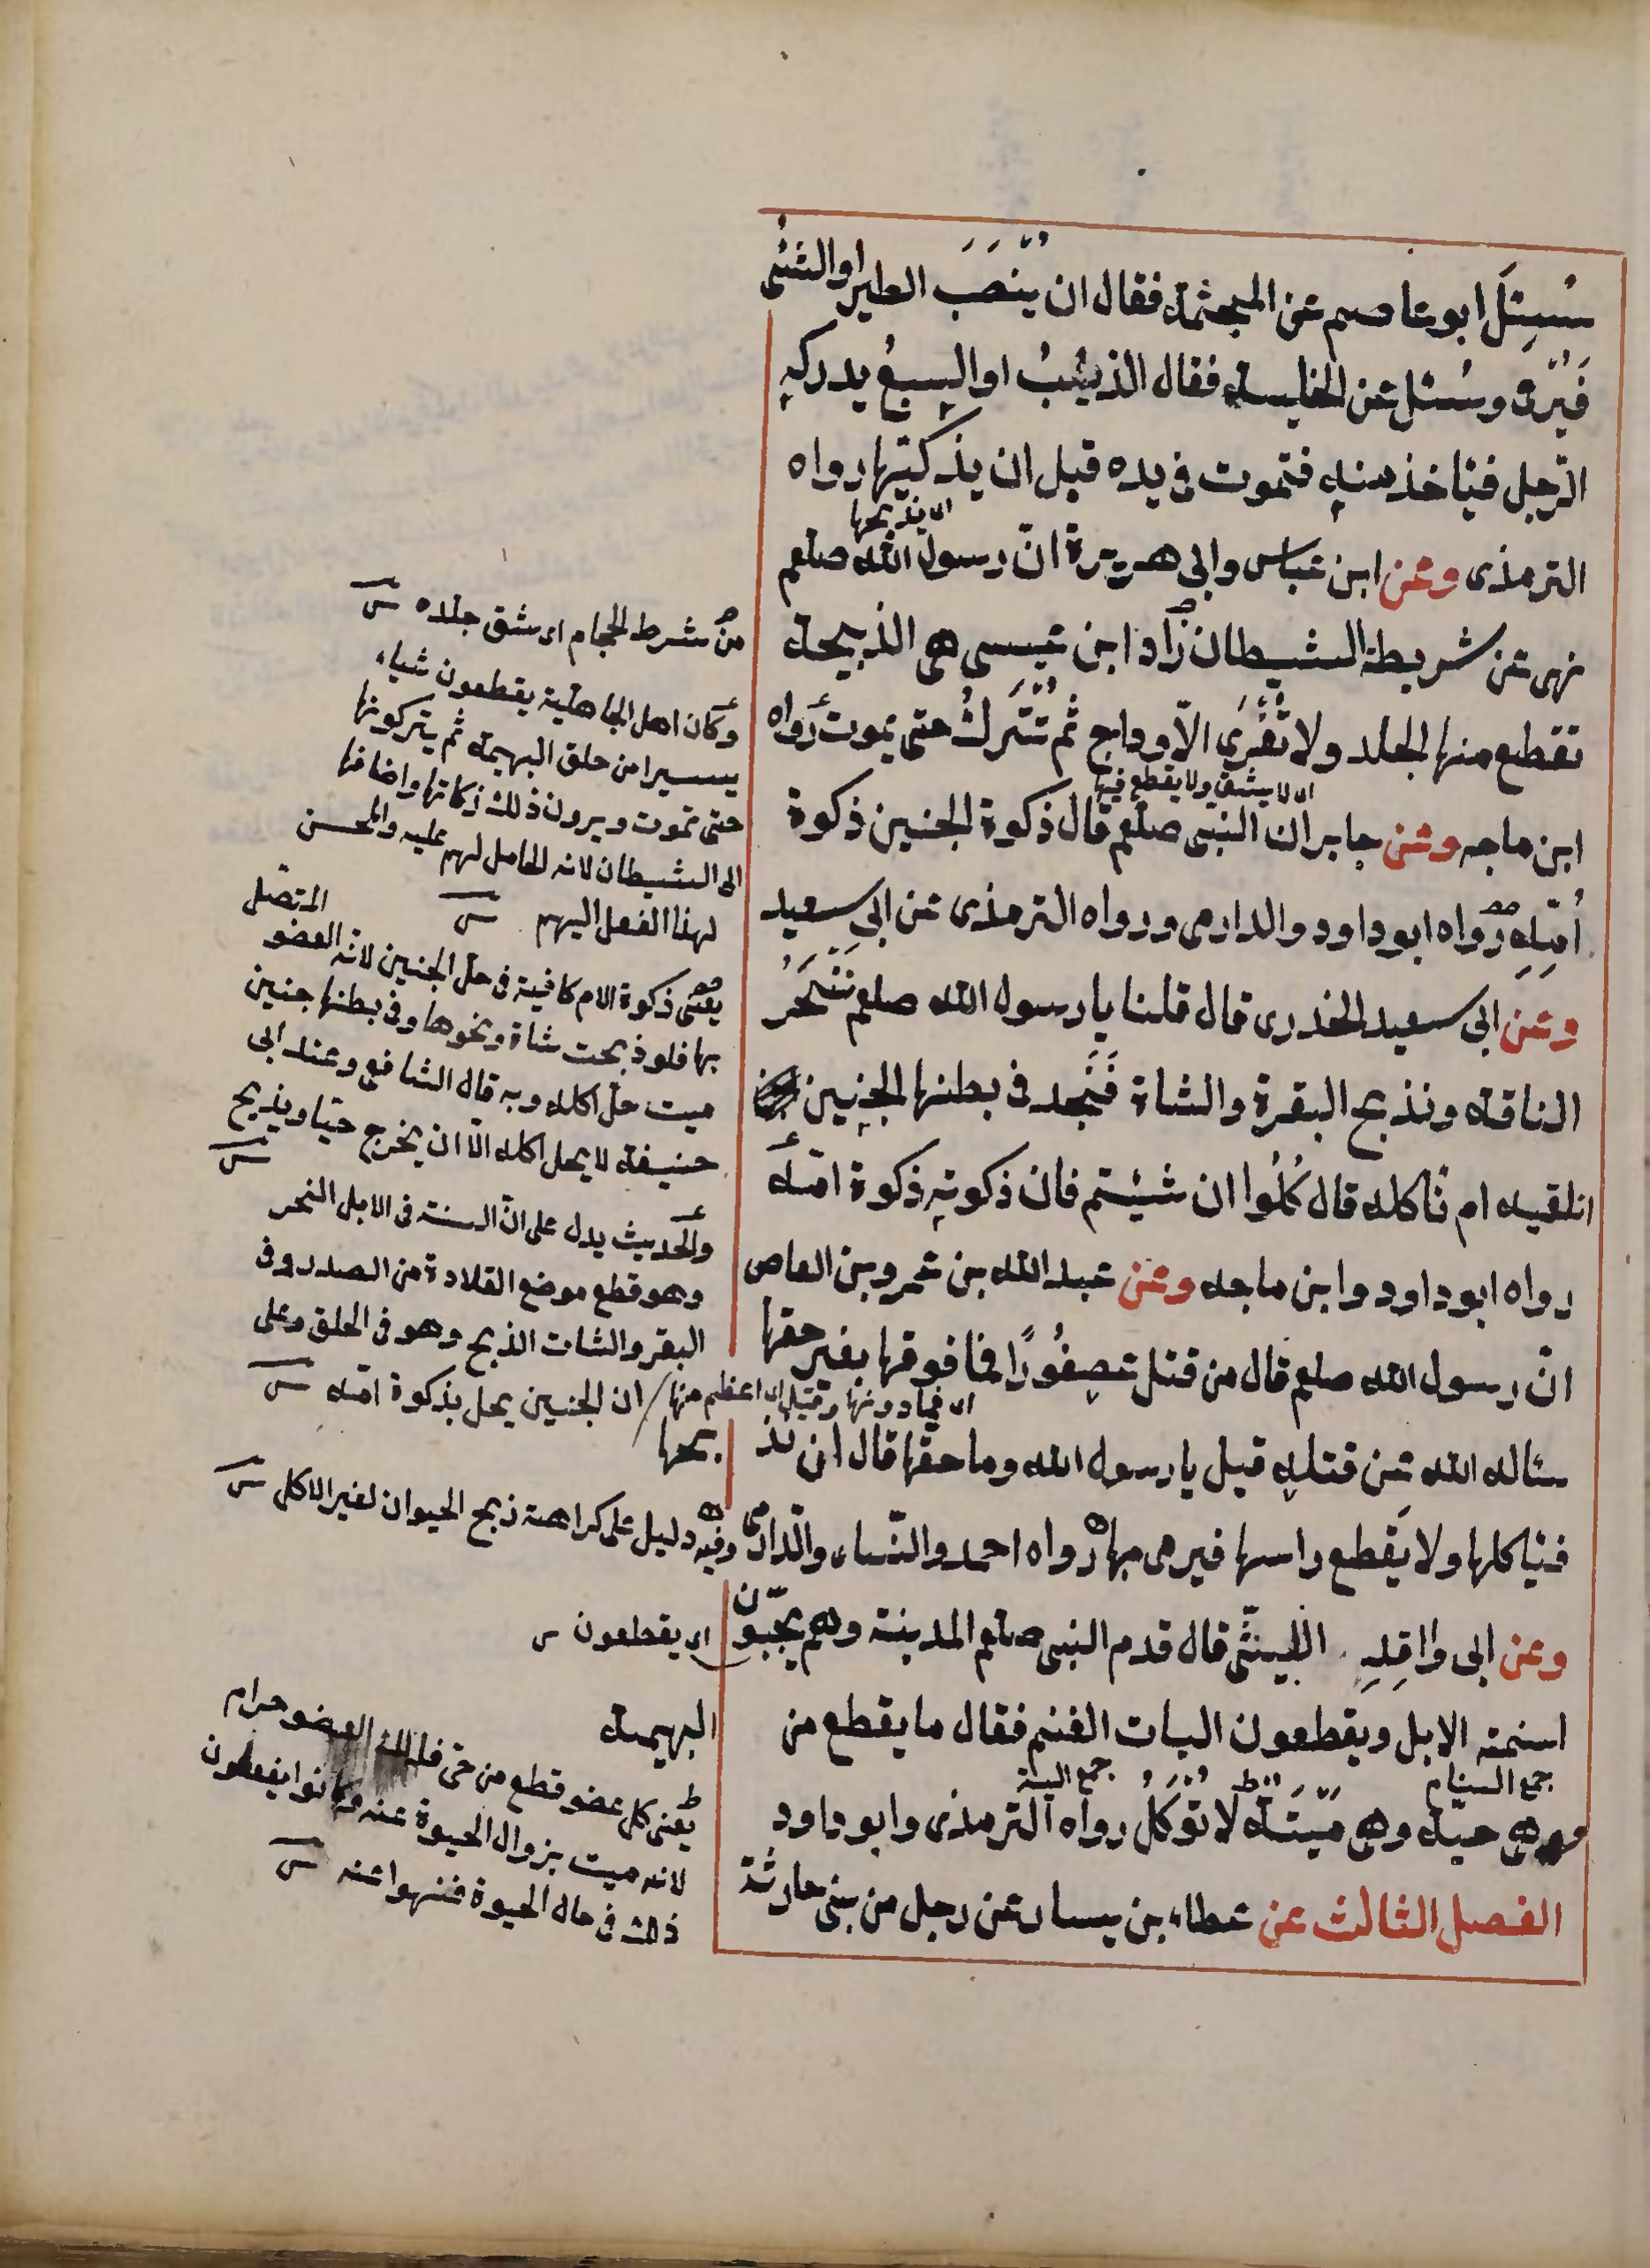 سُئِلَ ابو عاصم عن المجثمة فقال ان يُنْصَبَ الطير او الشئ
فَيُرْمى وسُئل عن الخليسة فقال الذئبُ او السبعُ يدركه
الرّجل فياخذ منه فتموت في يده قبل ان يذكيها رواه
اى يذبحها
الترمذى وعن ابن عباس وابى هريرة انّ رسول الله صلعم
نهى عن شريطة الشيطان زاد ابن عيسى هى الذبيحة
تقطع منها الجلد ولا تُفْرَى الاوداج ثم تُتْرَكُ حتى يموت رواه
اى لا يشق ولا يقطع فيها
ابن ماجه وعن جابر ان النبى صلعم قال ذكوة الجنين ذكوة
اُمِّهِ رواه ابو داود والدارمى ورواه الترمذى عن ابى سعيد
وعن ابى سعيد الخدرى قال قلنا يا رسول الله صلعم نَنْحَرُ
الناقة ونذبح البقرة والشاة فَنَجد فى بطنها الجنين
انلقيه ام ناكله قال كُلُوا ان شئتم فان ذكوته ذكوة امّه
رواه ابو داود وابن ماجه وعن عبد الله بن عمرو بن العاص
انّ رسول الله صلعم قال من قتل عصفُورًا فما فوقها بغير حقها
اى فما دونها وقيل اى اعظم منها
سئاله الله عن قتله قيل يا رسول الله وما حقها قال ان يذبحها
فياكلها ولا يَقطع راسها فيرمى بها رواه احمد والنّساء والدارمى
وعن ابى واقِدِ الليثى قال قدم النبى صلعم المدينة وهم يجبّون
اسنمة الابل ويقطعون اليات الغنم فقال ما يقطع من البهيمة
جمع السنام جمع الية
وهى حيّة وهى مَيْتَة لا تُؤكلُ رواه الترمذى وابو داود
الفصل الثالث عن عطاء بن يسار عن رجل من بنى حارثة
من شرط الحجام اى شق جلده
وكان اهل الجاهلية يقطعون شياء
يسيرا من حلق البهيمة ثم يتركونها
حتى تموت ويرون ذلك زكاتها واضافها
الى الشيطان لانه الحامل لهم عليه والمحسن
لهذا الفعل اليهم
يعنى ذكوة الام كافية فى حلّ الجنين لانّه العضو المتصل
بها فلو ذبحت شاة ونحوها وفى بطنها جنين
ميت حلّ اكله وبه قال الشافعى وعند ابى
حنيفة لا يحل اكله الّا ان يخرج حيّا ويذبح
والحديث يدل على انّ السنة فى الابل النحر
وهو قطع موضع القلادة من الصدر وفى
البقر والشات الذبح وهو فى الحلق وعلى
ان الجنين يحل بذكوة امّه
وفيه دليل على كراهة ذبح الحيوان لغير الاكل
اى يقطعون
يعنى كل عضو قطع من حى فذلك العضو حرام
لانه ميت بزوال الحيوة عنه وكانوا يفعلون
ذلك فى حال الحيوة فنهوا عنه